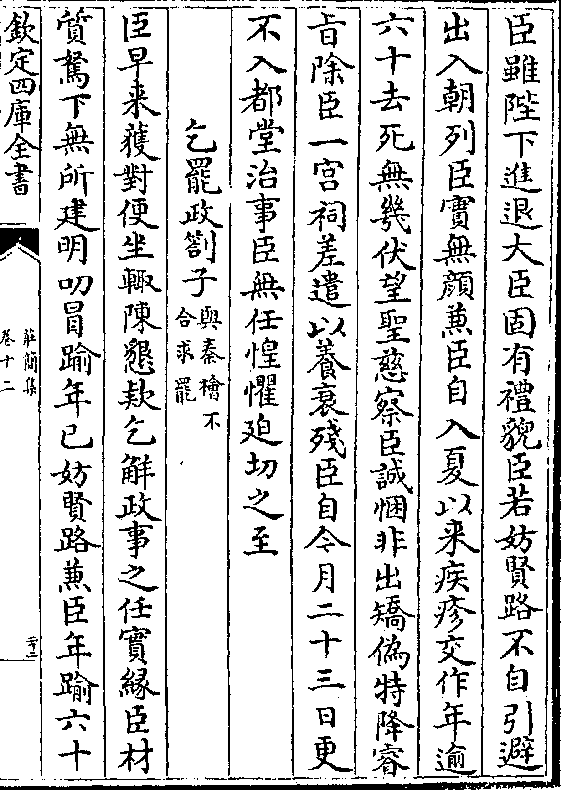 臣雖陛下進退大臣固有禮貌臣若妨賢路不自引避
出入朝列臣實無顔兼臣自入夏以来疾疹交作年逾
六十去死無幾伏望聖慈察臣誠悃非出矯偽特降睿
旨除臣一宫祠差遣以養衰殘臣自今月二十三日更
不入都堂治事臣無任惶懼廹切之至
乞罷政劄子與秦檜不合求罷
臣早来獲對便坐輙陳懇欵乞解政事之任實緣臣材
質駑下無所建明叨冒踰年已妨賢路兼臣年踰六十
欽定四庫全書
莊簡集
卷十二
二十二